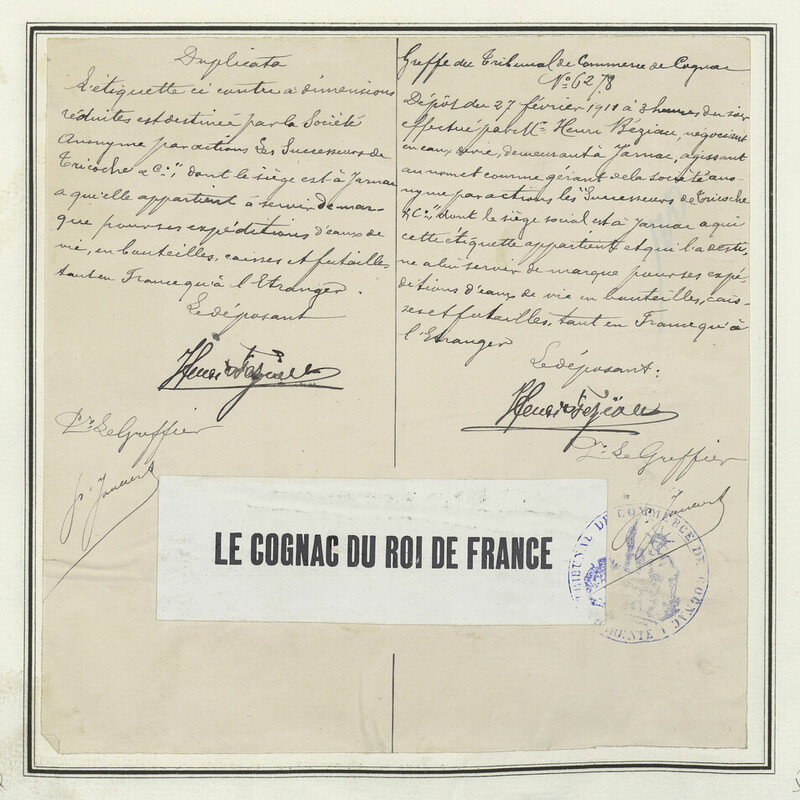 Duplicata
L'étiquette ci contre à dimensions
réduites est destinée par la Société
Anonyme par actions Les Successeurs de
Tricoche & Cie", dont le siège est à Jarnac
a qu'elle appartient à servir de mar-
que pour ses expéditions d'eaux de
vie, en bouteilles, caisses et futailles
tant en France qu'à l'Etranger.
Le déposant
Pr Le Greffier
LE COGNAC DU ROI DE FRANCE
Greffe du Tribunal de Commerce de Cognac
No 6278
Dépôt du 27 février 1911 à 3 heures du soir
effectué par Mr Henri Béziau, négociant
en eaux de vie, demeurant à Jarnac, agissant
au nom et comme gérant de la société ano-
nyme par actions les "Successeurs de Tricoche
& Cie", dont le siège social est à Jarnac a qui
cette étiquette appartient et qui l'a desti-
né a lui servir de marque pour ses expé-
ditions d'eaux de vie en bouteilles, cais-
ses et futailles, tant en France qu'à
l'Etranger
Le déposant:
Pr Le Greffier
TRIBUNAL DE COMMERCE DE COGNAC
CHARENTE